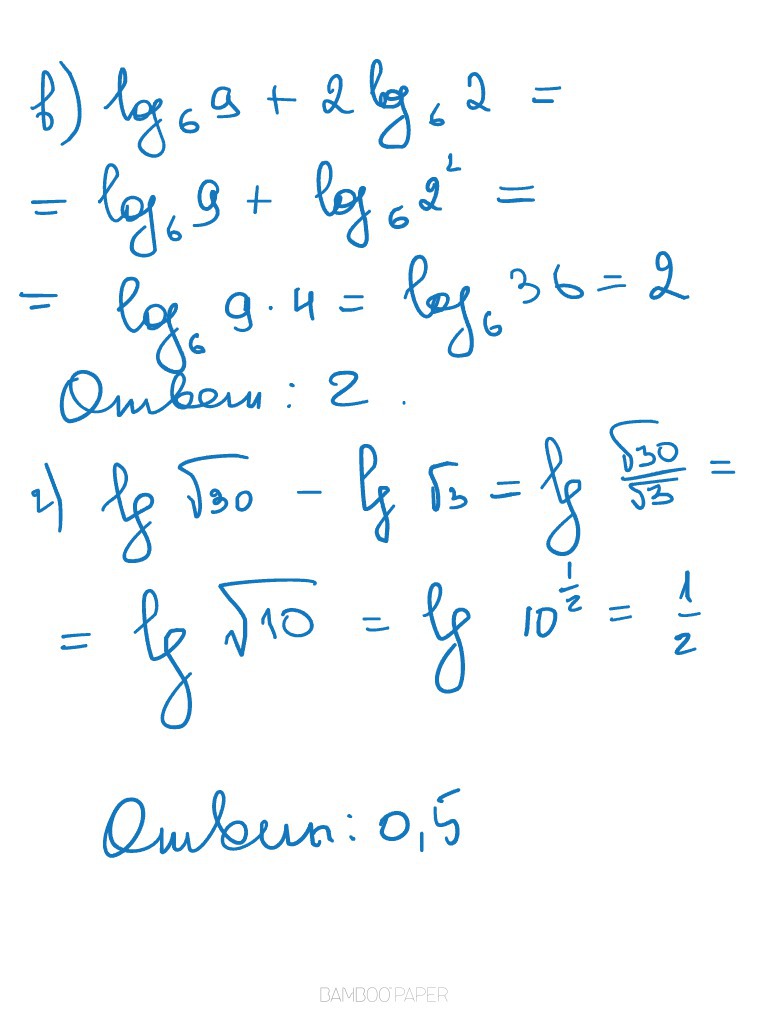 в) log₆ 9 + 2 log₆ 2 =
= log₆ 9 + log₆ 2² =
= log₆ 9 · 4 = log₆ 36 = 2
Ответ: 2.
г) lg √30 − lg √3 = lg √30/√3 =
= lg √10 = lg 10^(1/2) = 1/2
Ответ: 0,5
BAMBOO PAPER